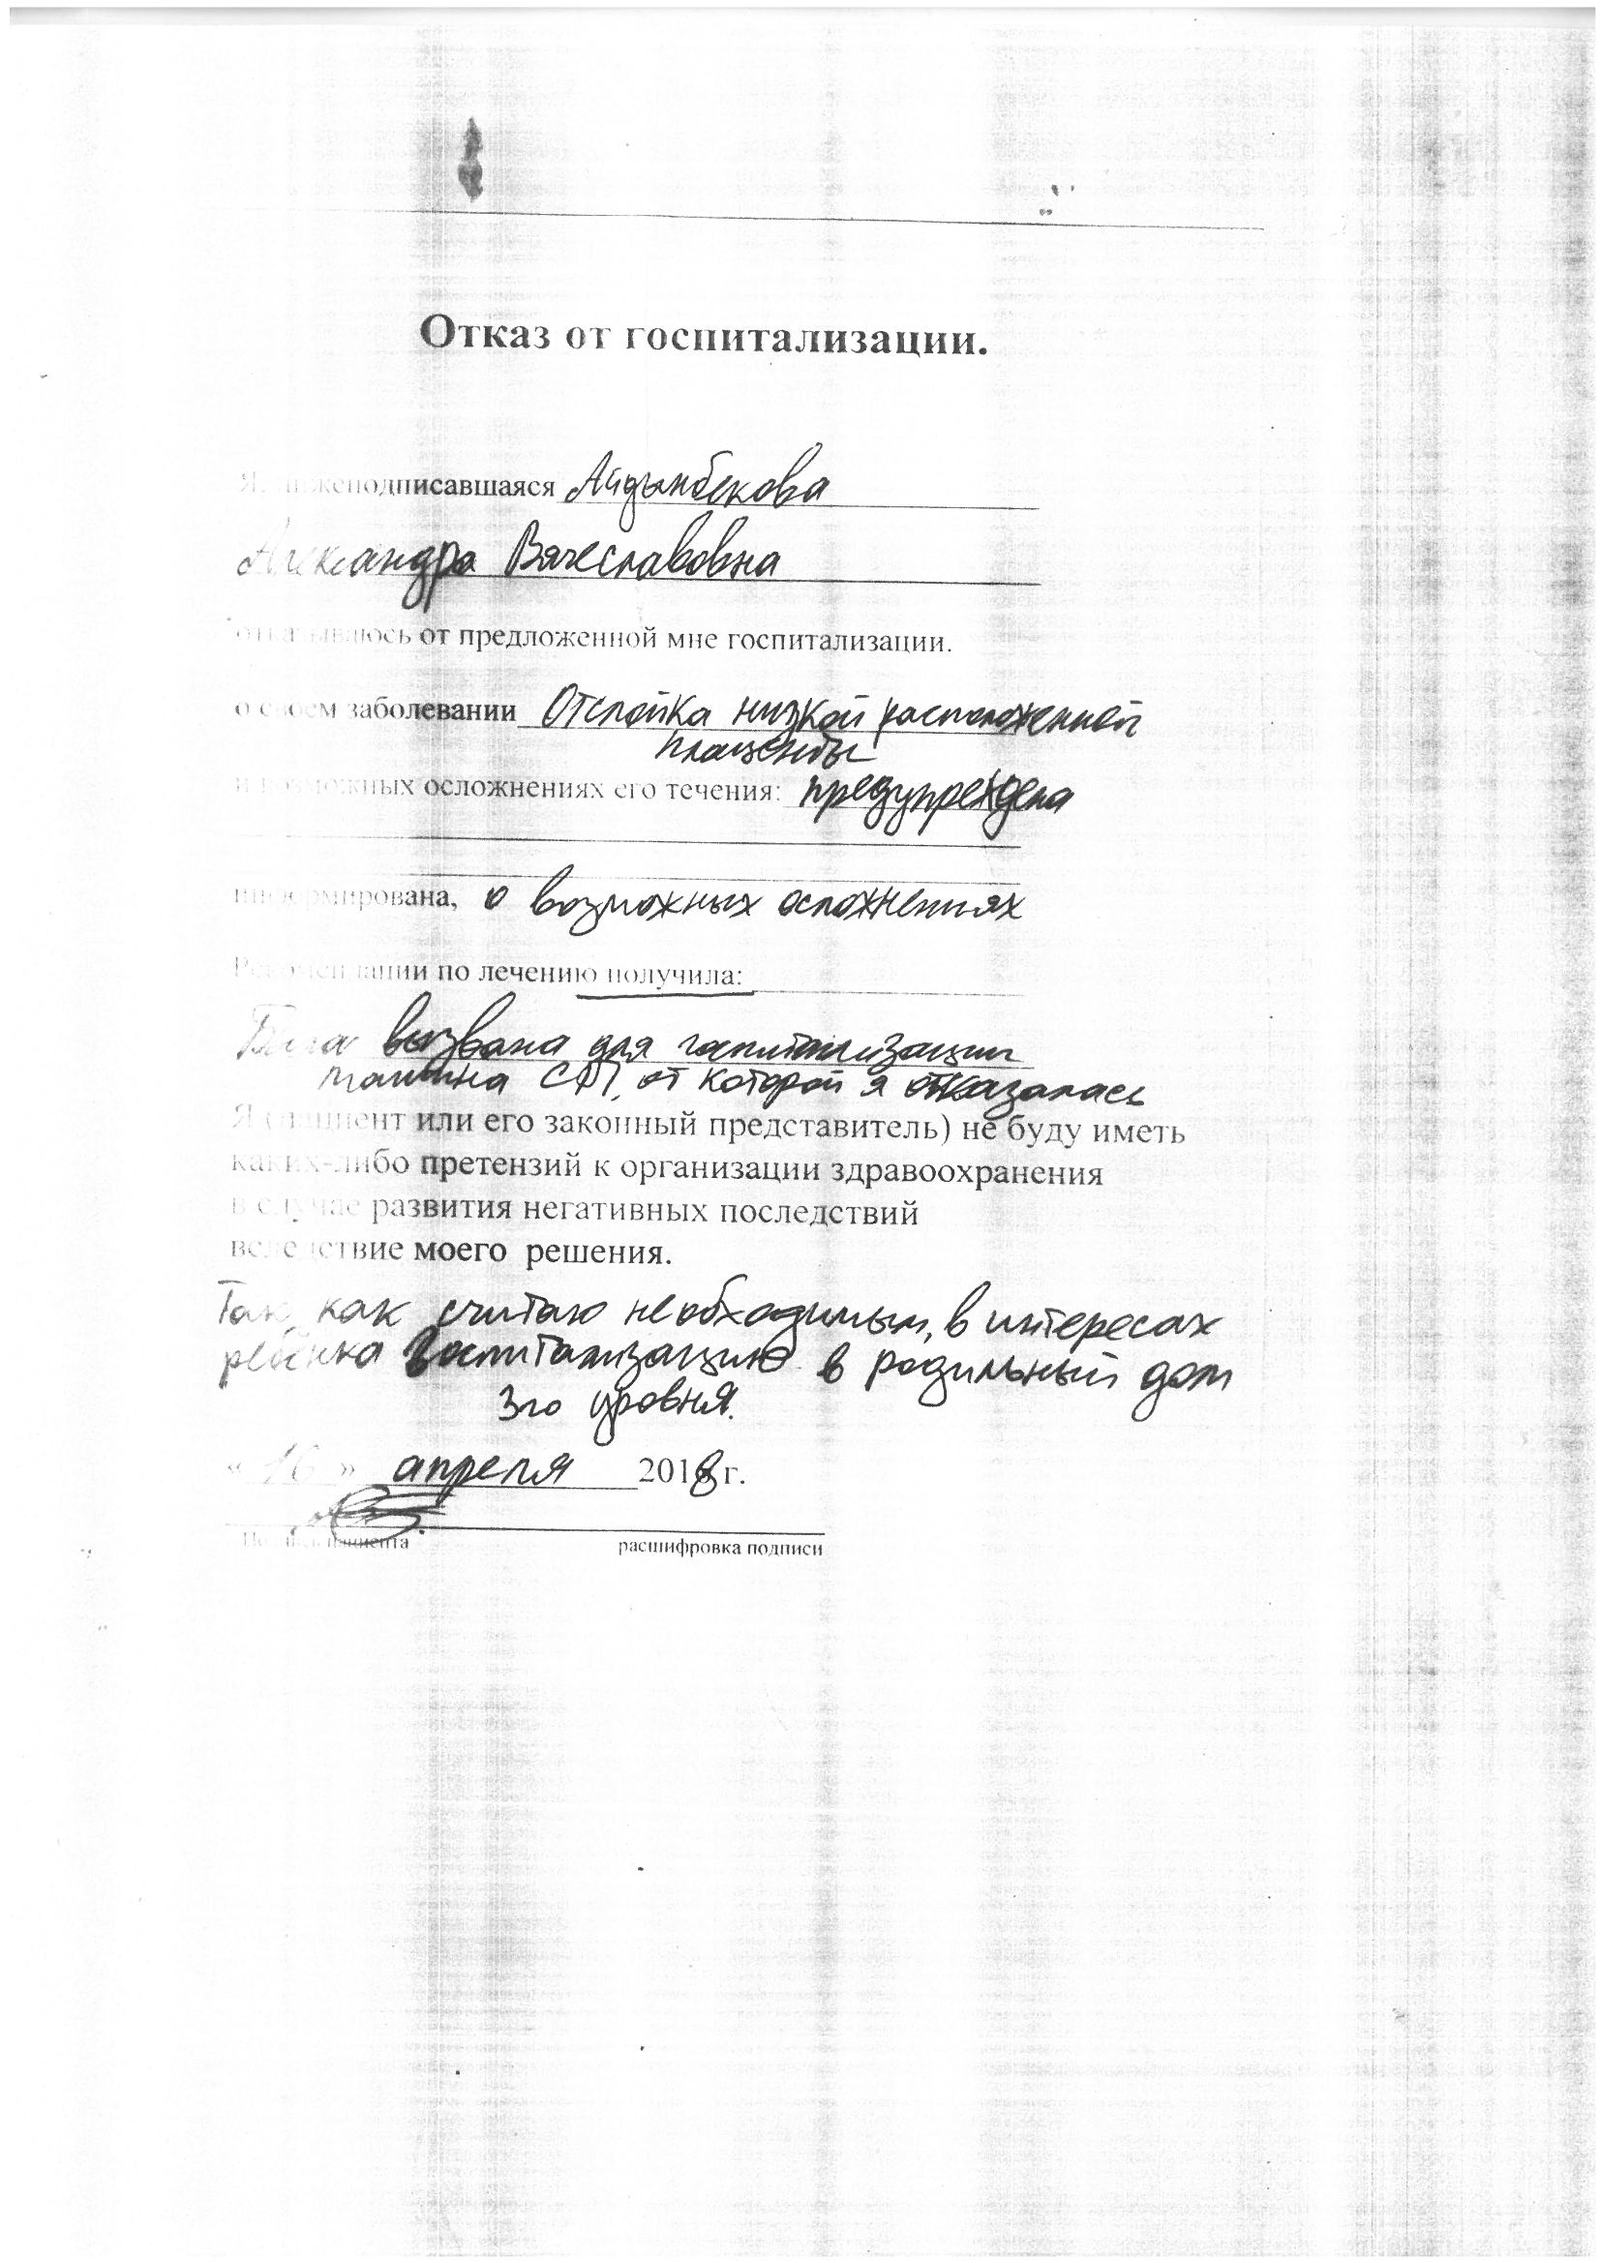 Отказ от госпитализации.
Я, нижеподписавшаяся Айдынбекова
Александра Вячеславовна
отказываюсь от предложенной мне госпитализации.
о своем заболевании Отслойка низкой расположенной
плаценты
и возможных осложнениях его течения: предупреждена
информирована, о возможных осложнениях
Рекомендации по лечению получила:
Была вызвана для гопитализации
машина СП, от которой я отказалась
Я (пациент или его законный представитель) не буду иметь
каких-либо претензий к организации здравоохранения
в случае развития негативных последствий
вследствие моего решения.
Так как считаю необходимым, в интересах
ребенка госпитализацию в родильный дом
3го уровня.
« 16 » апреля 2018 г.
Подпись пациента расшифровка подписи